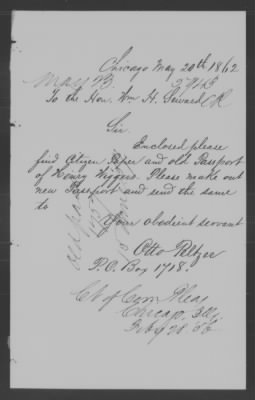 Chicago May 20th 1862
May 23. 27163
To the Hon. Wm H. Seward CR
Sir
Enclosed please
find Citizen Paper and old Passport
of Henry Wiggers. Please make out
new Passport and send the same
to
Your obedient servant
Otto Peltzer
P.O. Box 1718.
Ct of Com Pleas
Chicago, Ills.
old pass